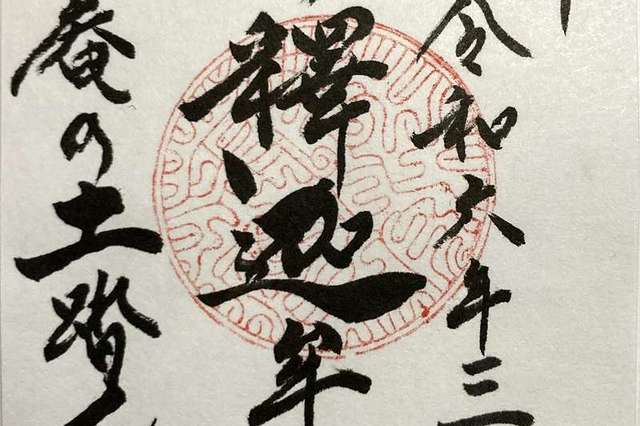 令和六年三
釋迦牟
庵の土踏